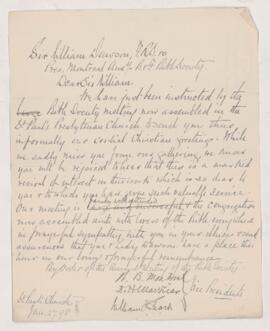 Sir William Dawson, F.R.S. &c
Pres. Montreal Aux. B & F Bible Society
Dear Sir William.
We have just been instructed by the
Bible Society meeting now assembled in the
St Paul's Presbyterian Church to send you thus
informally our cordial Christian greetings. While
we sadly miss you from our gathering we know
you will be rejoiced to hear that this is a marked
period of interest in this work which is so dear to
you & towards you have given such valuable service.
Our meeting is largely attended & the congregation
now assembled unite with lovers of the Bible everywhere
in prayerful sympathy with you in your illness & send
assurances that you & Lady Dawson have a place this
hour in our loving & prayerful remembrance.
By Order of the Annual Meeting of the Bible Society
D. H. MacVicar
Vice Presidents
William
St Pauls Church
Jan. 27. 98